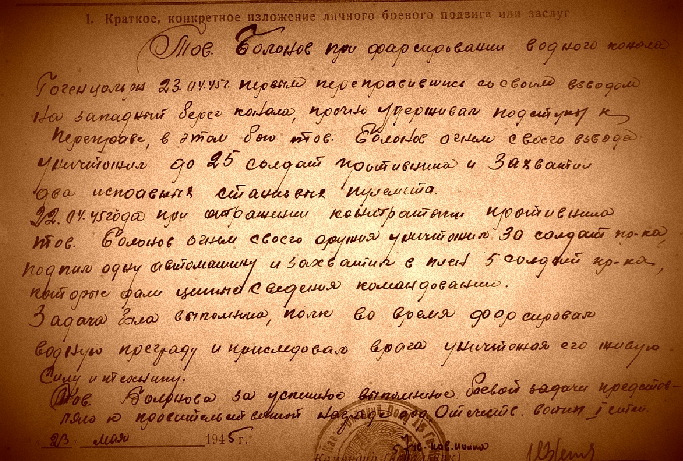 I. Краткое, конкретное изложение личного боевого подвига или заслуг
Тов. Болонов при фарсировании водного конала
Гогенцолерн 23.04.45г первым переправившись со своим взводом
на западный берег конала, прочно удерживал подступы к
переправе, в этом бою тов. Болонов огнем своего взвода
уничтожил до 25 солдат противника и захватил
два исправных станковых пулемета.
22.04.45 года при отражении контратаки противника
тов. Болонов огнем своего оружия уничтожил 30 солдат пр-ка,
подпил одну автомашину и захватил в плен 5 солдат пр-ка,
которые дали ценные сведения командованию.
Задача была выполнена, полк во время форсировал
водную преграду и приследовал врага уничтожая его живую
силу и технику.
Тов. Болонова за успешное выполнение боевой задачи представ-
ляю к правительственной награде орд. Отечеств. войны I степ.
23 мая 1945 г.